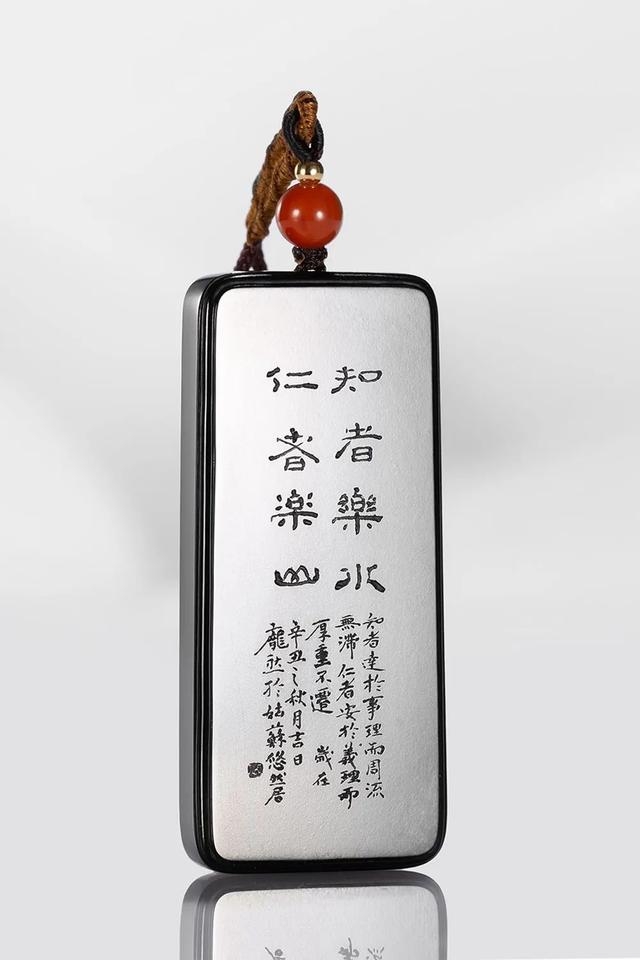 知者樂水
仁者楽山
知者達於事理而周流
無滯仁者安於義理而
厚重不遷 歲在
辛丑之秋月吉日
龐然於姑蘇悠然居